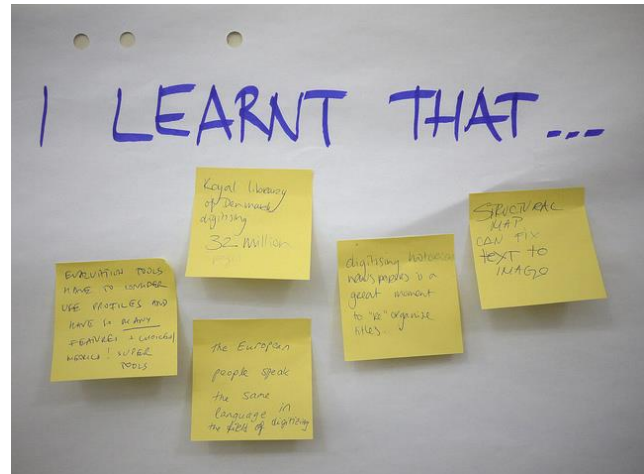 I LEARNT THAT...
Royal library
of Denmark
digitising
32 million
EVALUATION TOOLS
HAVE TO CONSIDER
USE PROFILES AND
HAVE SO MANY
FEATURES +
METRICS! SUPER
TOOLS
the European
people speak
the same
language in
the field of digitizing
digitising historical
newspapers is a
great moment
to "re" organise
titles...
STRUCTURAL
MAP
CAN FIX
TEXT TO
IMAGE